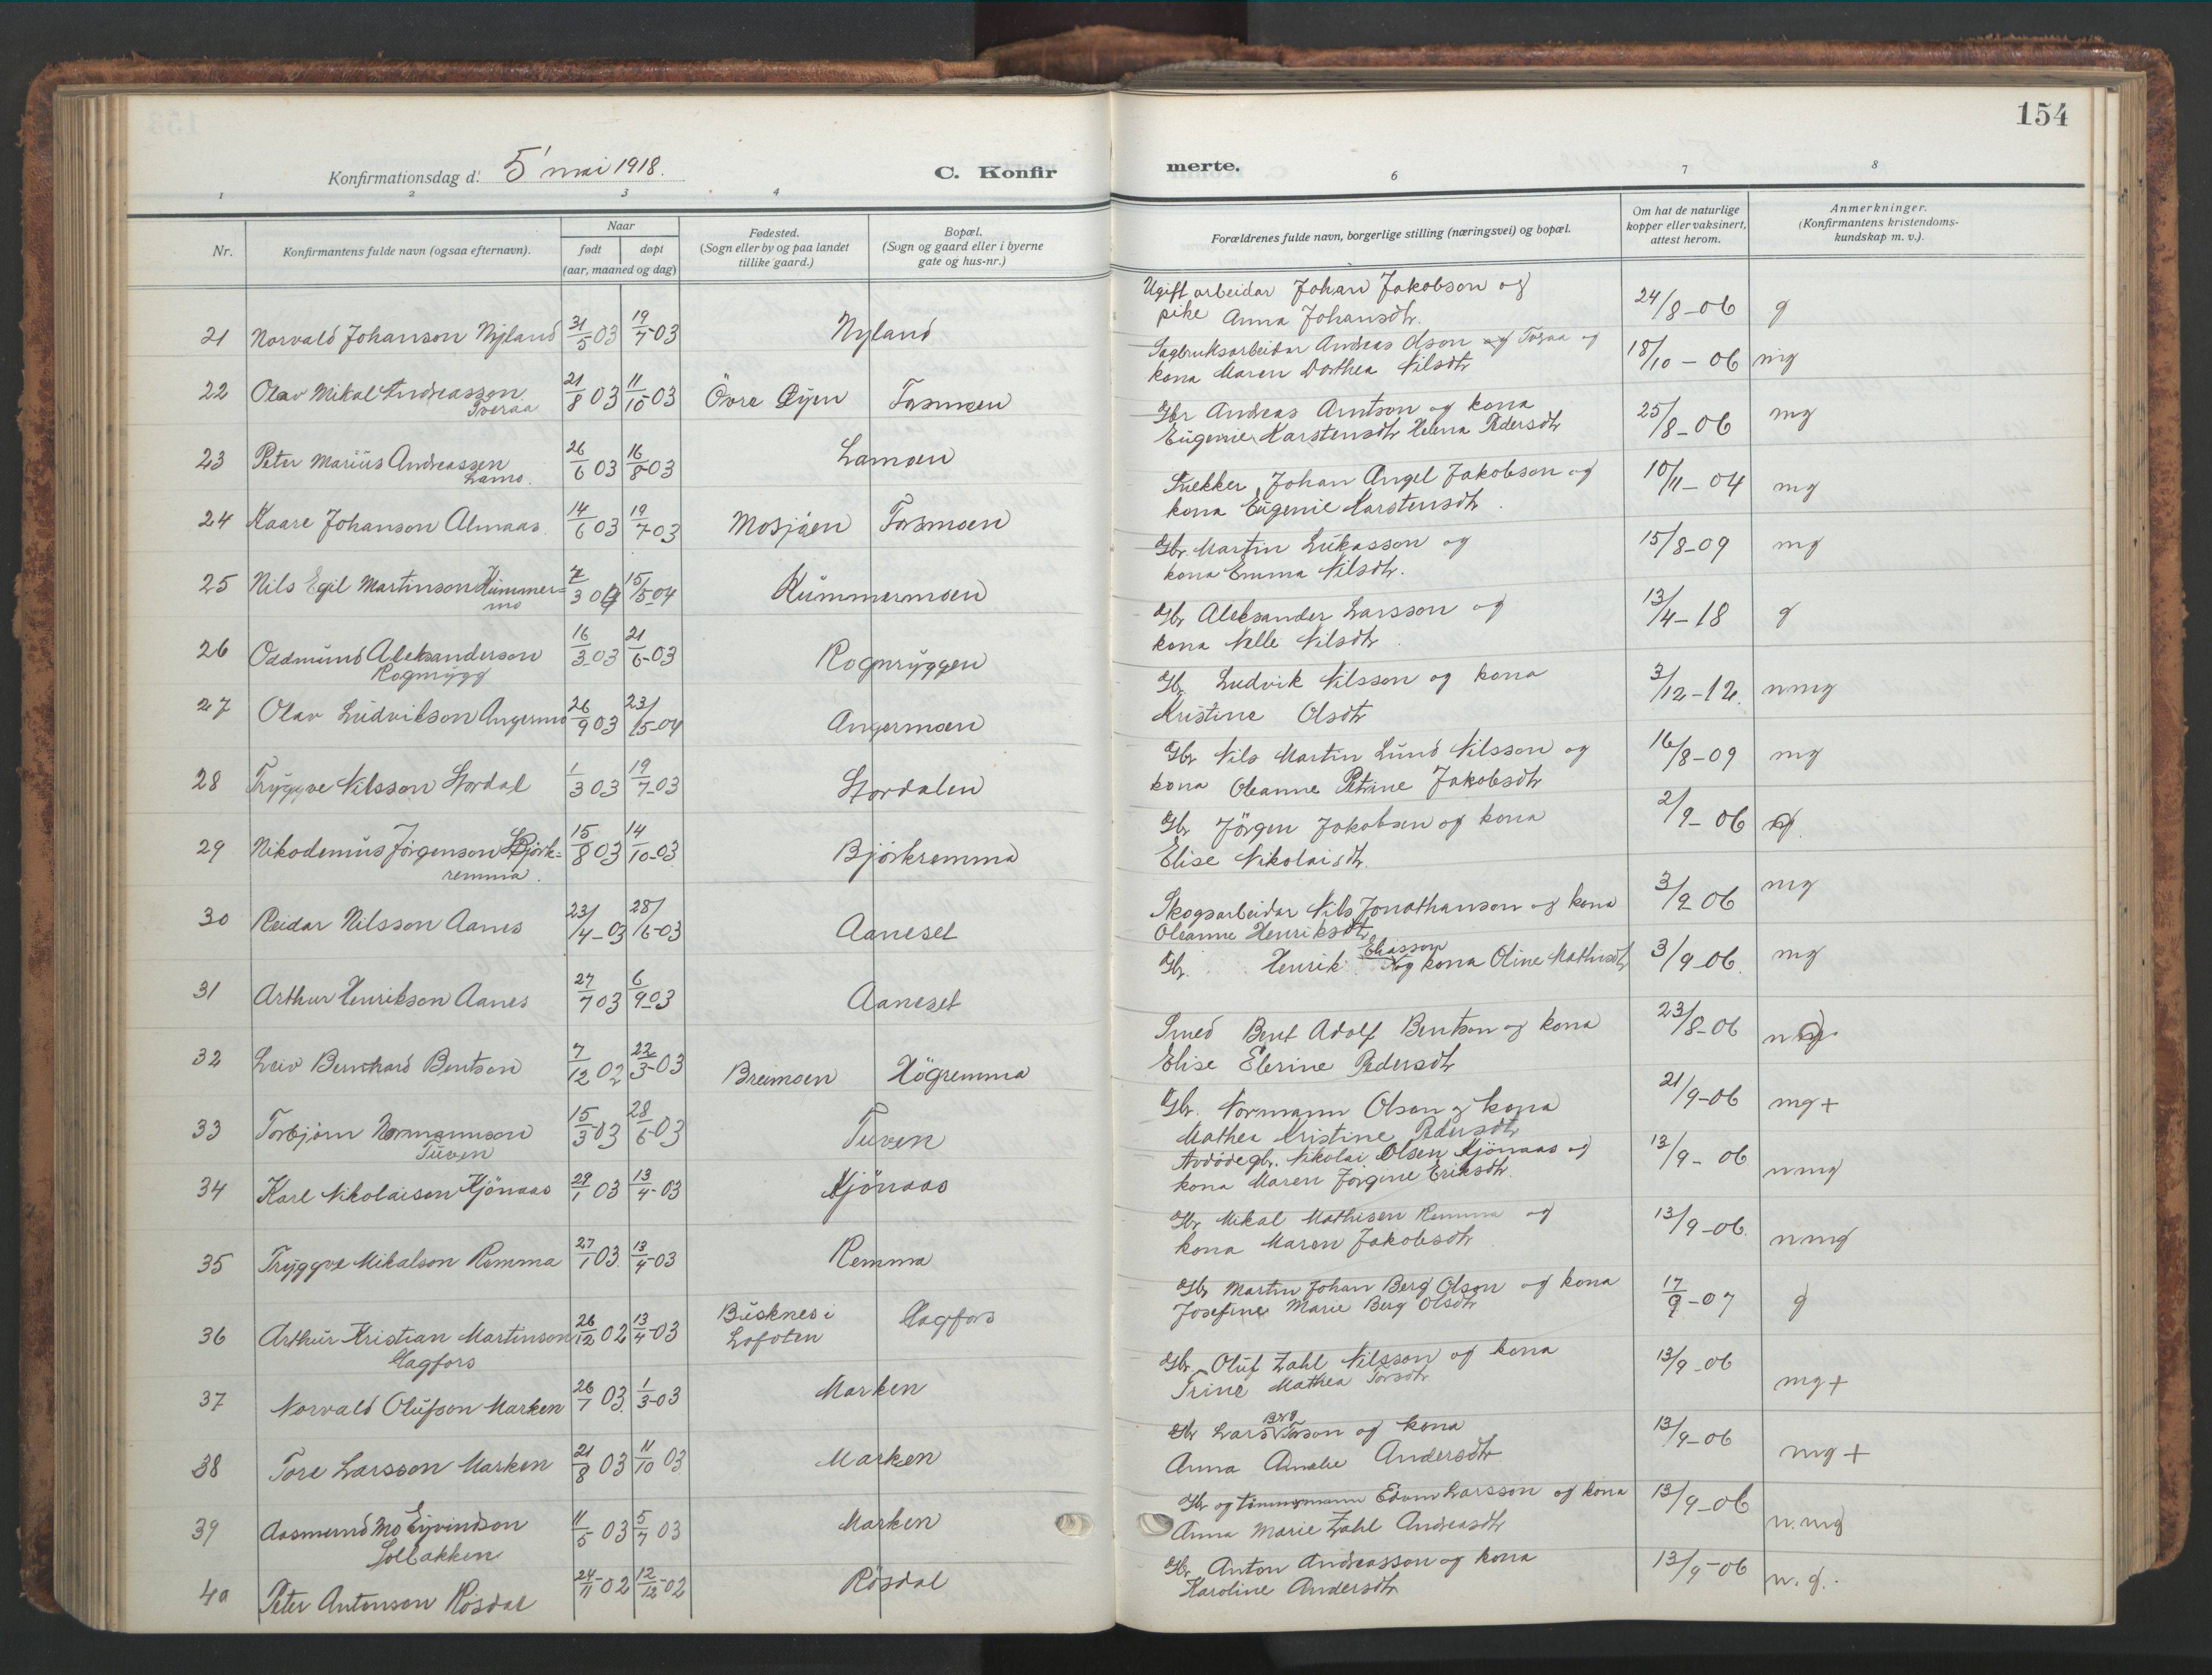 154
Konfirmationsdag d: 5' mai 1918.
C. Konfirmerte.
1 2 3 4 6 7 8
Nr. Konfirmantens fulde navn (ogsaa efternavn). Naar født døpt (aar, maaned og dag) Fødested. (Sogn eller by og paa landet tillike gaard.) Bopæl. (Sogn og gaard eller i byerne gate og hus-nr.) Forældrenes fulde navn, borgerlige stilling (næringsvei) og bopæl. Om hat de naturlige kopper eller vaksinert, attest herom. Anmerkninger. (Konfirmantens kristendoms-kundskap m. v.).
21 Norvald Johanson Nyland 31/5 03 19/7-03 Nyland Ugift arbeidar Johan Jakobson og 24/8-06 g
pike Anna Johansdtr.
22 Olav Mikal Andreasson 21/8 03 11/10-03 Övre Øyen Forsmoen Sagbruksarbeidar Andreas Olson og 18/10-06 mg
Tveraa kona Maren Dorthea Nilsdtr
23 Peter Marius Andreassen 26/6 03 16/8-03 Lamoen Gbr Andreas Arntson og kona 25/8-06 mg
Lamo. Eugenie Karstensdtr Helena Pedersdtr
24 Kaare Johanson Almaas 14/6 03 19/7-03 Mosjöen Forsmoen Snekker Johan Angel Jakobson og 10/11-04 mg
kona Eugenie Karstensdtr.
25 Nils Egil Martinson Kummer= 3 04 15/5-04 Kummermoen Gbr. Martin Lukasson og 15/8-09 mg
mo kona Emma Nilsdtr.
26 Oddmund Aleksanderson 16/3-03 21/6-03 Rognryggen Gbr Aleksander Larsson og 13/4-18 g
Rognrygg kona Nelle Nilsdtr.
27 Olav Ludvikson Angermo 26/9 03 23/5-04 Angermoen Gbr Ludvik Nilsson og kona 3/12-12. nmg
Kristine Olsdtr
28 Tryggve Nilsson Stordal 1/3 03 19/7-03 Stordalen Gbr Nils Martin Lund Nilsson og 16/8-09 mg
kona Oleanne Petrine Jakobsdtr
29 Nikodemus Jörgenson Björk= 15/8 03 14/10-03 Björkremma Gbr Jörgen Jakobsen og kona 2/9-06
remma. Elise Nikolaisdtr.
30 Reidar Nilsson Aanes 23/4-03 28/6-03 Aaneset Skogsarbeidar Nils Jonathanson og kona 3/9 06 mg
Oleanne Henriksdtr
31 Arthur Henrikson Aanes 27/7 03 6/9-03 Aaneset Gbr. Henrik Eliasson og kona Oline Mathisdtr 3/9-06. mg
32 Leiv Bernhard Bentson 7/12 02 22/3-03 Breimoen Högremma Smed Bent Adolf Bentson og kona 23/8-06
Elise Elerine Pedersdtr
33 Torbjörn Normannson 15/3-03 28/6-03 Tuven Gbr. Normann Olson og kona 21/9-06 mg+
Tuven Mathea Kristine Pedersdtr
34 Karl Nikolaisen Kjönaas 29/1 03 13/4-03 Kjönaas Avdöde gbr. Nikolai Olsen Kjönaas og 13/9-06 nmg
kona Maren Jörgine Eriksdtr.
35 Tryggve Mikalson Remma 27/1 03. 13/4-03 Remma Gbr Mikal Mathisen Remma og 13/9-06. nmg
kona Maren Jakobsdtr.
36 Arthur Kristian Martinson 26/12 02 13/4-03 Busknes i Hagfors Gbr Martin Johan Berg Olson og kona 17/9-07 g
Hagfors Lofoten Josefine Marie Berg Olsdtr
37 Norvald Olufson Marken 26/1 03. 1/3-03 Marken Gbr. Oluf Zahl Nilsson og kona 13/9-06 mg+
Trine Mathea Torsdtr
38 Tore Larsson Marken 21/8 03 11/10 03 Marken Gbr Lars Torson og kona 13/9-06 mg+
Anna Amalie Andersdtr
39 Aasmund Mo Eyvindson 11/5 03 5/7 03 Marken Gbr og tömmermann Edvin Larsson og kona 13/9-06 n.mg
Solbakken Anna Marie Zahl Andreasdtr
40 Peter Antonson Rösdal 24/11-02 12/12-02 Rösdal Gbr. Anton Andreasson og kona 13/9-06 n.g.
Karoline Andersdtr